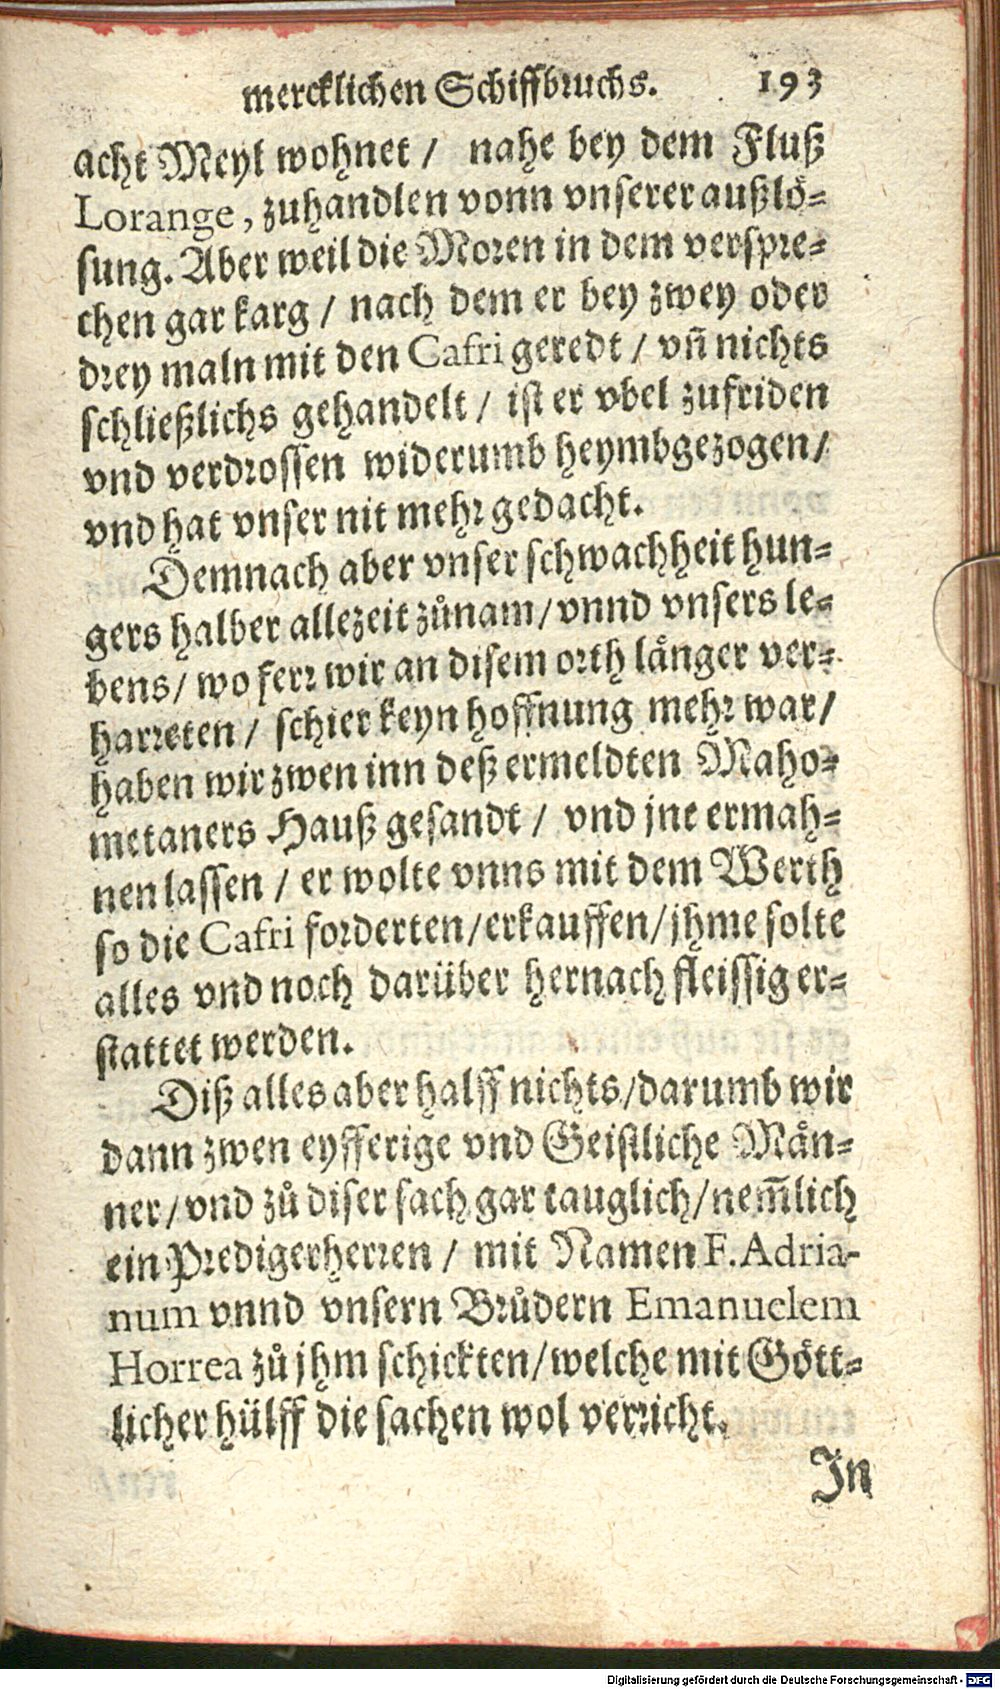 mercklichen Schiffbruchs. 193
acht Meyl wohnet / nahe bey dem Fluß
Lorange, zuhandlen vonn vnserer außlö-
sung. Aber weil die Moren in dem verspre-
chen gar karg / nach dem er bey zwey oder
drey maln mit den Cafri geredt / vñ nichts
schließlichs gehandelt / ist er vbel zufriden
vnd verdrossen widerumb heymbgezogen /
vnd hat vnser nit mehr gedacht.
Demnach aber vnser schwachheit hun-
gers halber allezeit zůnam / vnnd vnsers le-
bens / wo ferr wir an disem orth länger ver-
harreten / schier keyn hoffnung mehr war /
haben wir zwen inn deß ermeldten Maho-
metaners Hauß gesandt / vnd jne ermah-
nen lassen / er wolte vnns mit dem Werth
so die Cafri forderten / erkauffen / jhme solte
alles vnd noch darüber hernach fleissig er-
stattet werden.
Diß alles aber halff nichts / darumb wir
dann zwen eyfferige vnd Geistliche Män-
ner / vnd zů diser sach gar tauglich / nem̃lich
ein Predigerherren / mit Namen F. Adria-
num vnnd vnsern Brůdern Emanuelem
Horrea zů jhm schickten / welche mit Gött-
licher hülff die sachen wol verricht.
In
Digitalisierung gefördert durch die Deutsche Forschungsgemeinschaft - DFG